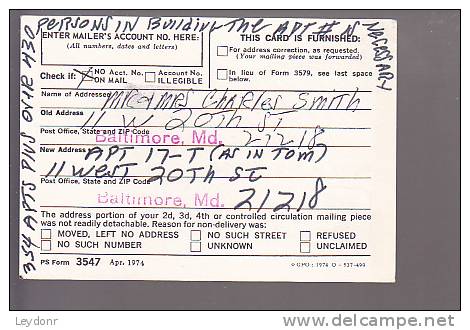 PERSONS IN BUILDING THE APT # IS
NECESSARY
354 APTS PLUS OVER 430
ENTER MAILER'S ACCOUNT NO. HERE:
(All numbers, dates and letters)
Check if: NO Acct. No. ON MAIL Account No. ILLEGIBLE
THIS CARD IS FURNISHED:
For address correction, as requested.
(Your mailing piece was forwarded)
In lieu of Form 3579, see last space below.
Name of Addressee
MR & MRS CHARLES SMITH
Old Address
11 W 20TH ST
Post Office, State and ZIP Code
Baltimore, Md. 21218
New Address
APT 17-T (AS IN TOM)
11 WEST 20TH ST
Post Office, State and ZIP Code
Baltimore, Md. 21218
The address portion of your 2d, 3d, 4th or controlled circulation mailing piece
was not readily detachable. Reason for non-delivery was:
MOVED, LEFT NO ADDRESS NO SUCH STREET REFUSED
NO SUCH NUMBER UNKNOWN UNCLAIMED
PS Form 3547 Apr. 1974
GPO : 1974 O - 537-499
Leydonr
delcampe.net